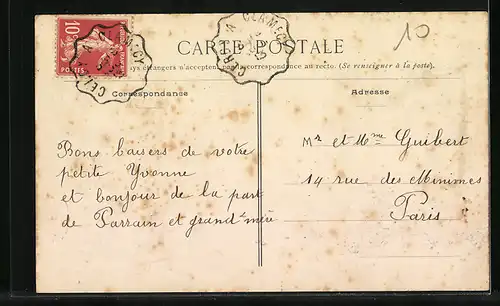 10
CARTE POSTALE
pays étrangers n'acceptent pas la correspondance au recto. (Se renseigner à la poste).
Correspondance
Adresse
Bons baisers de votre
petite Yvonne
et bonjour de la part
de Parrain et grand'mère
Mr et Mme Guibert
14 rue des Minimes
Paris
10
POSTES
CLAMECY
CLAMECY